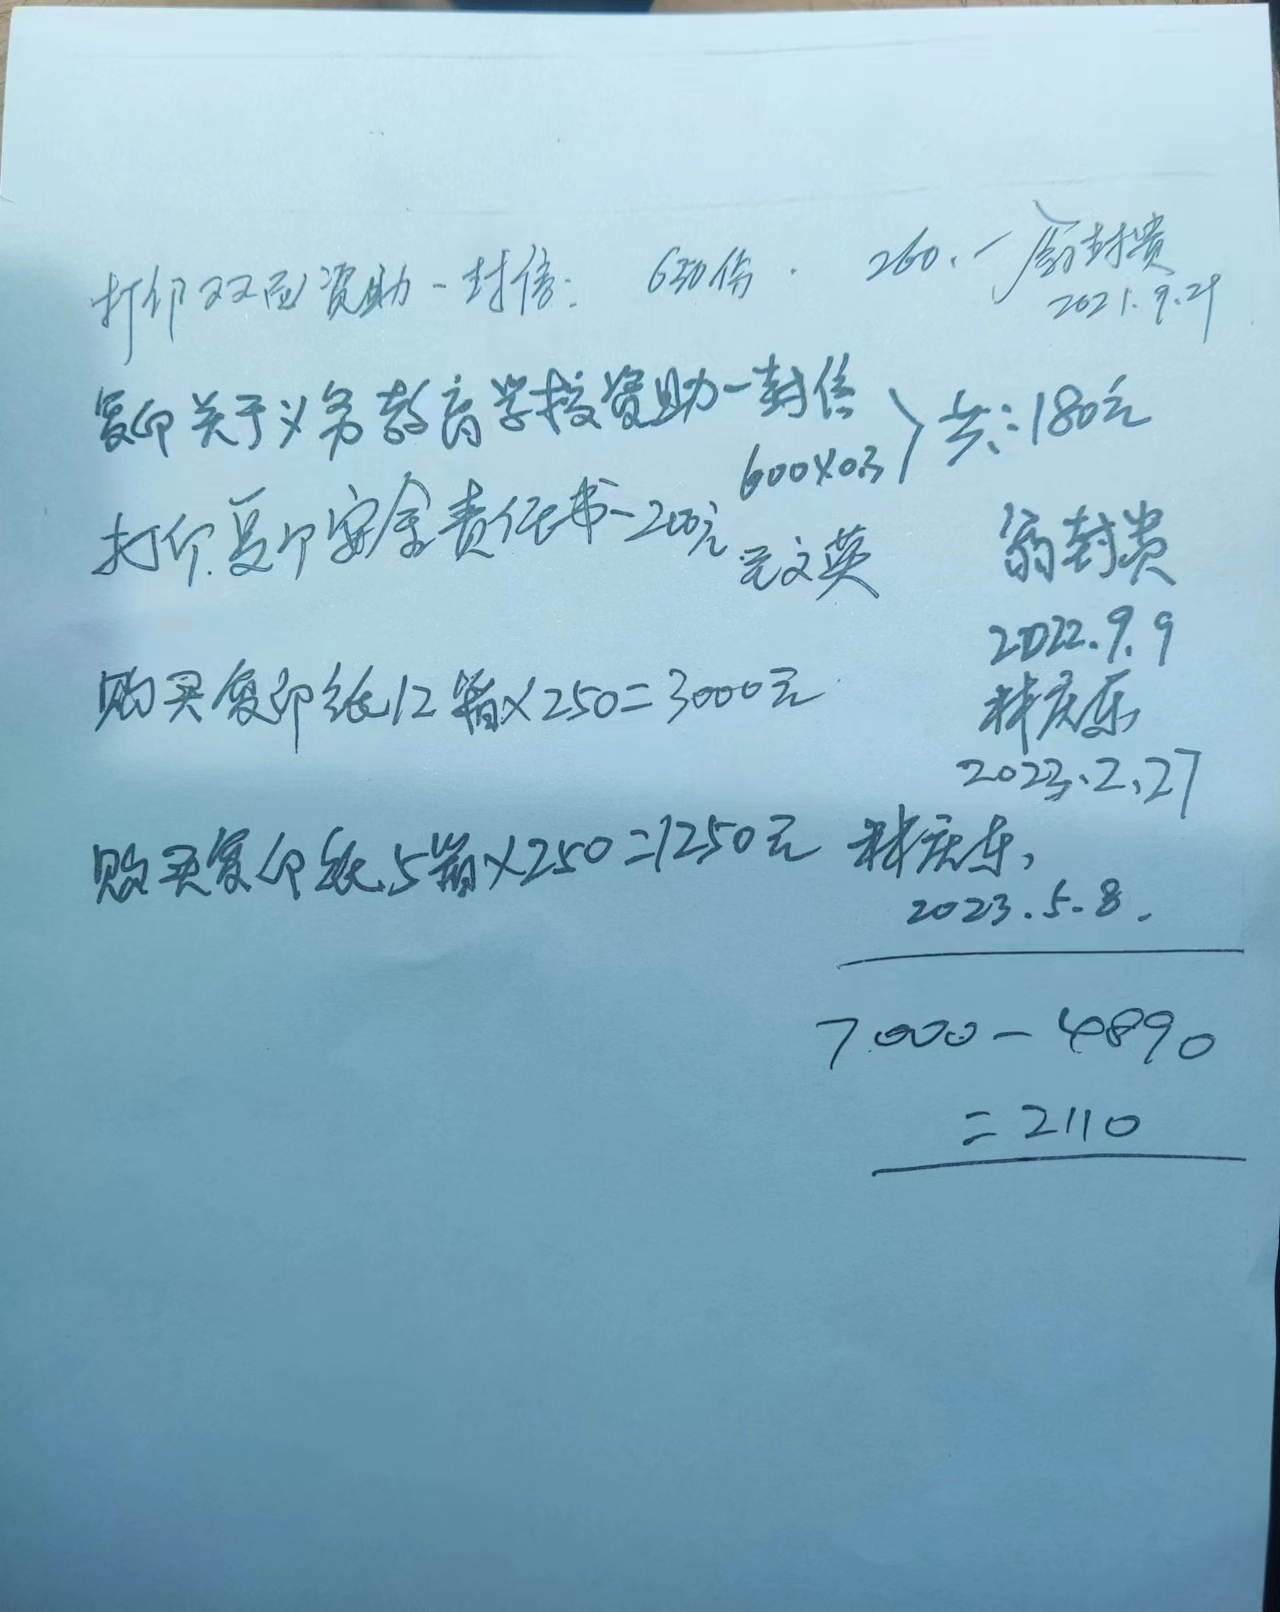 打印双应资助一封信： 650份. 260.- 翁封贵
2021.9.29
复印关于义务教育学校资助一封信
600×0.3 共：180元
打印.复印安全责任书-200元
元文英 翁封贵
2022.9.9
购买复印纸12箱×250=3000元
林庆东
2023.2.27
购买复印纸5箱×250=1250元 林庆东,
2023.5.8.
7000-4890
=2110